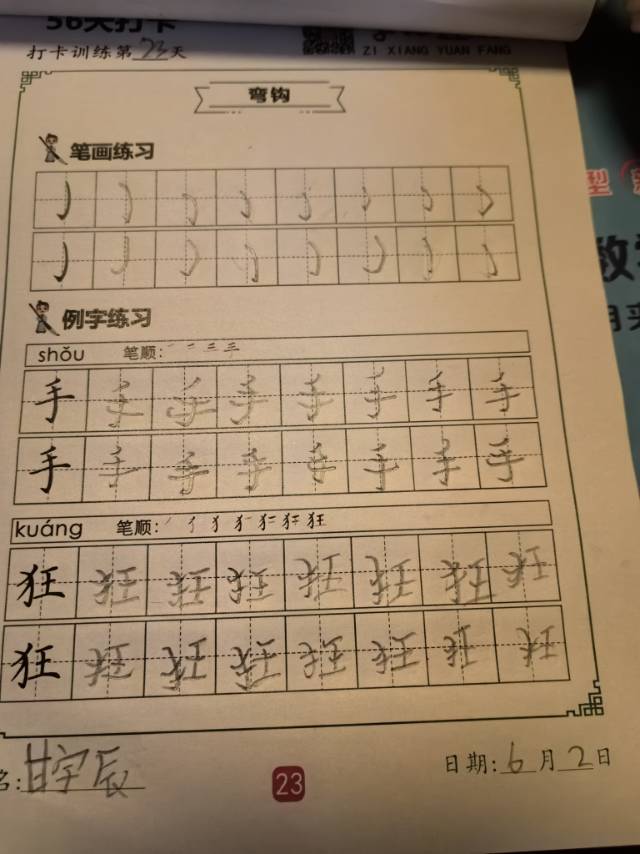 56天打卡
打卡训练第23天
ZI XIANG YUAN FANG
弯钩
笔画练习
例字练习
shǒu 笔顺:
手 手 手 手 手 手 手 手
手 手 手 手 手 手 手 手
kuáng 笔顺:
狂 狂 狂 狂 狂 狂 狂 狂
狂 狂 狂 狂 狂 狂 狂 狂
名:甘宇辰
23
日期:6月2日
型
数